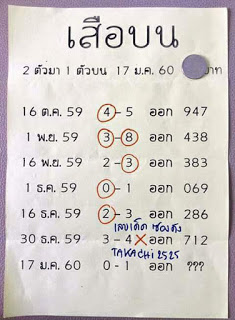 เสือบน
2 ตัวมา 1 ตัวบน 17 ม.ค. 60 บาท
16 ต.ค. 59 4-5 ออก 947
1 พ.ย. 59 3-8 ออก 438
16 พ.ย. 59 2-3 ออก 383
1 ธ.ค. 59 0-1 ออก 069
16 ธ.ค. 59 2-3 ออก 286
เลขเด็ด ซองดัง
30 ธ.ค. 59 3-4 ออก 712
TAKACHI2525
17 ม.ค. 60 0-1 ออก ???